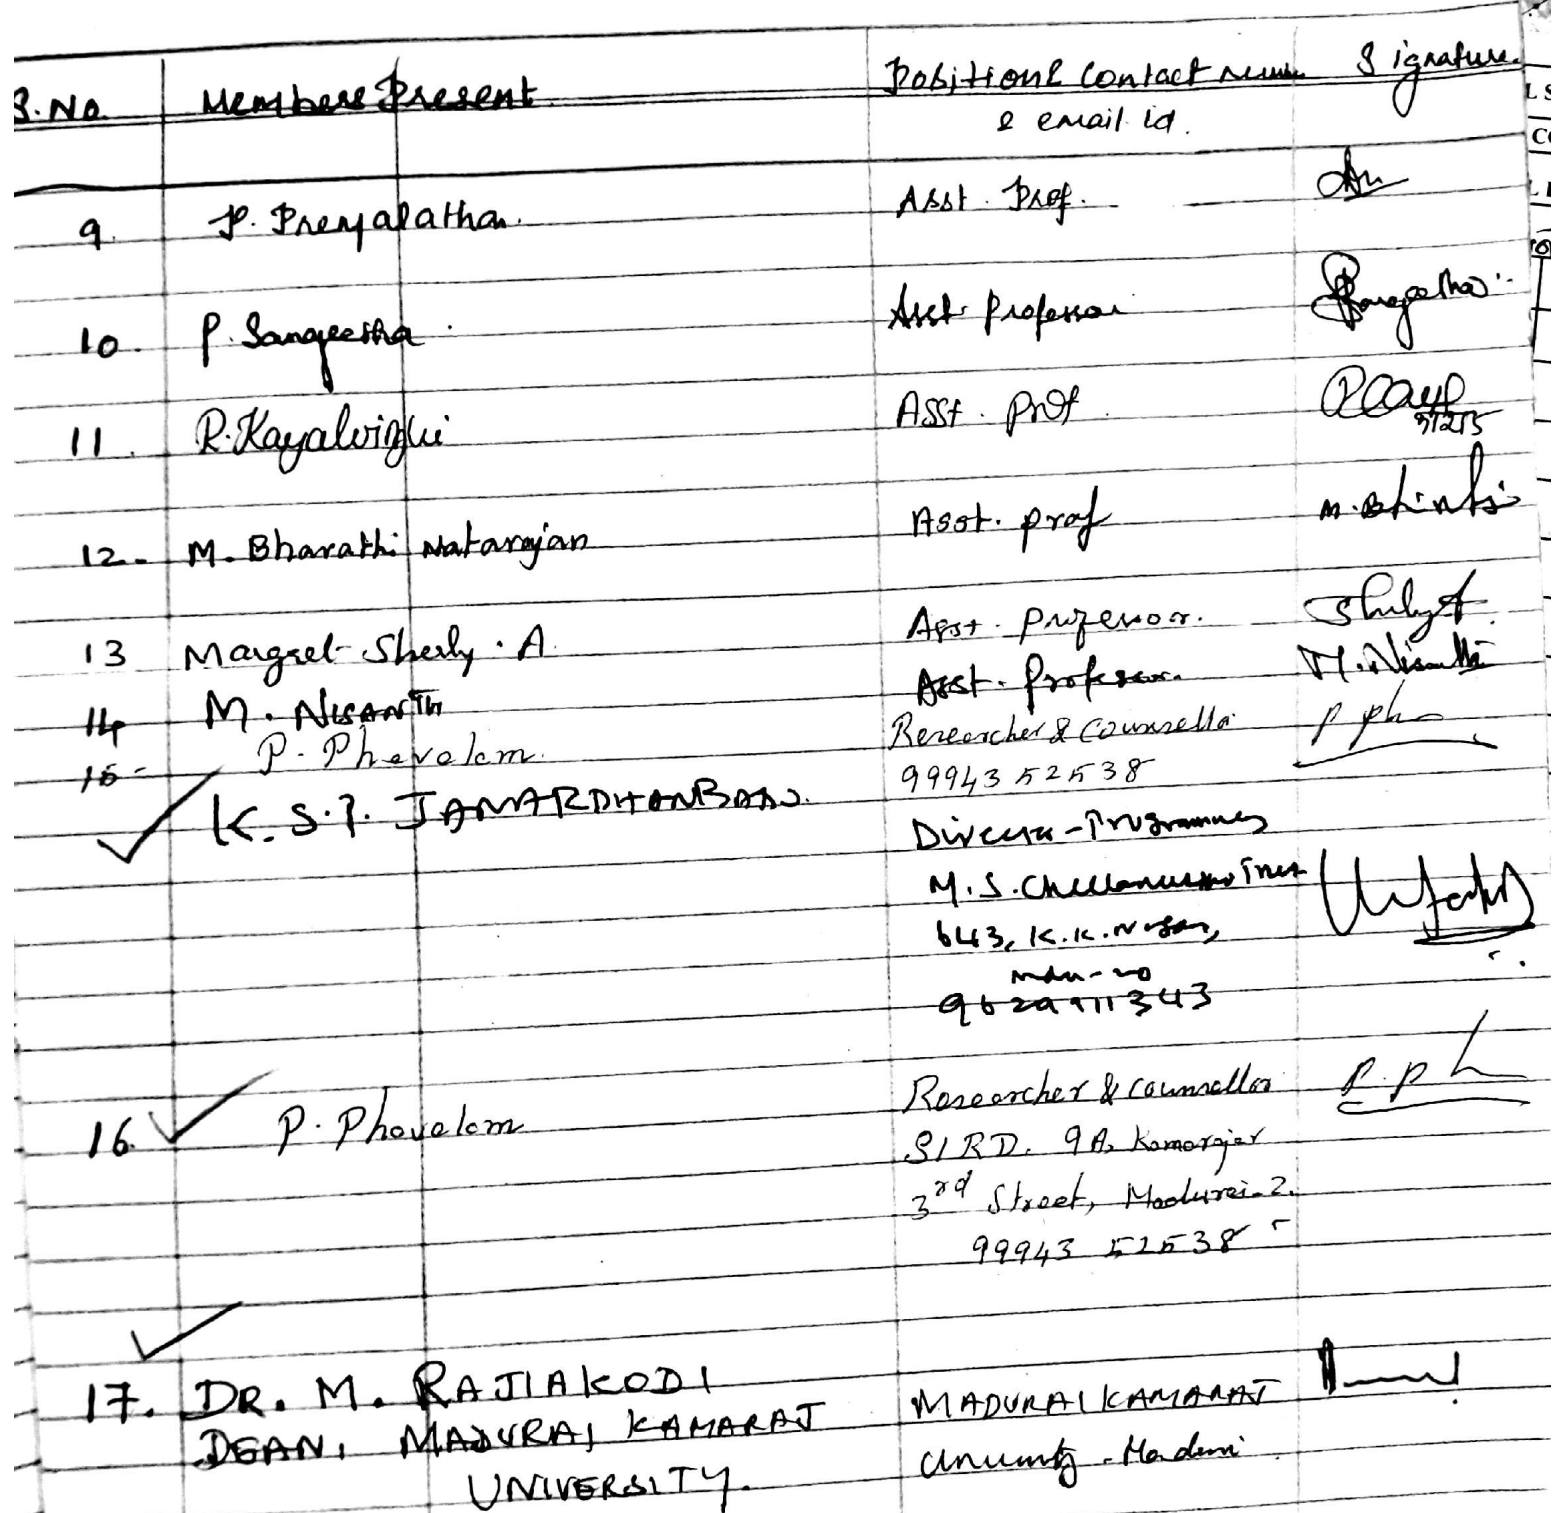 S.No. Members Present Positions Contact Signature
& email id.
9. P. Premalatha. Asst. Prof.
10. P. Sangeetha. Asst. Professor Sangeetha
11. R. Kayalvizhi Asst. Prof
12. M. Bharathi Natarajan Asst. prof
13 Margret Sherly. A Asst. Professor.
14 M. NISANTH Asst. Professor. M. Nisanth
15 P. Phavalam. Researcher & Counsellor
99943 52538
K. S. J. JANARDHAN
Director - Programmes
M. S. Chellamuthu Trust
643, K.K. Nagar,
mdu-20
9629911343
16. P. Phavalam Researcher & Counsellor P. Ph
SIRD. 9A, Kamarajar
3rd Street, Madurai-2.
99943 52538
17. DR. M. RAJIAKODI MADURAI KAMARAJ
DEAN, MADURAI KAMARAJ University - Madurai
UNIVERSITY.